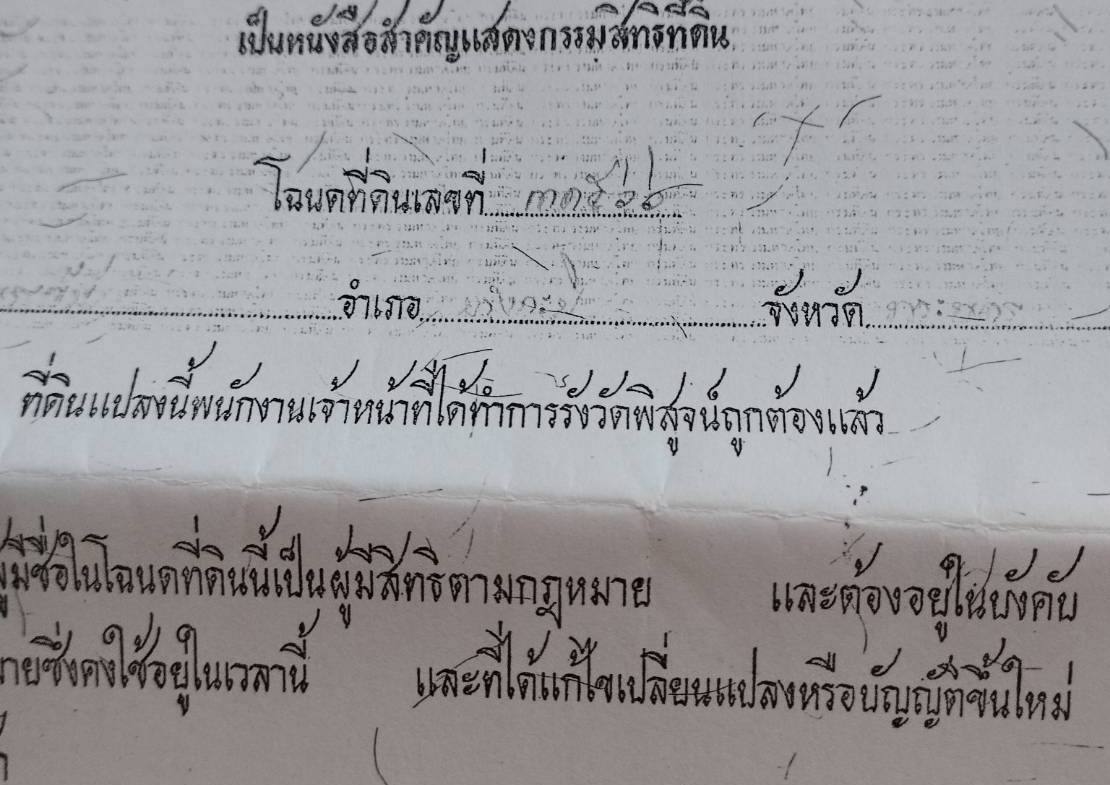 เป็นหนังสือสำคัญแสดงกรรมสิทธิที่ดิน
โฉนดที่ดินเลขที่
อำเภอ จังหวัด
ที่ดินแปลงนี้พนักงานเจ้าหน้าที่ได้ทำการรังวัดพิสูจน์ถูกต้องแล้ว
ผู้มีชื่อในโฉนดที่ดินนี้เป็นผู้มีสิทธิตามกฎหมาย และต้องอยู่ในบังคับ
มายซึ่งคงใช้อยู่ในเวลานี้ และที่ได้แก้ไขเปลี่ยนแปลงหรือบัญญัติขึ้นใหม่